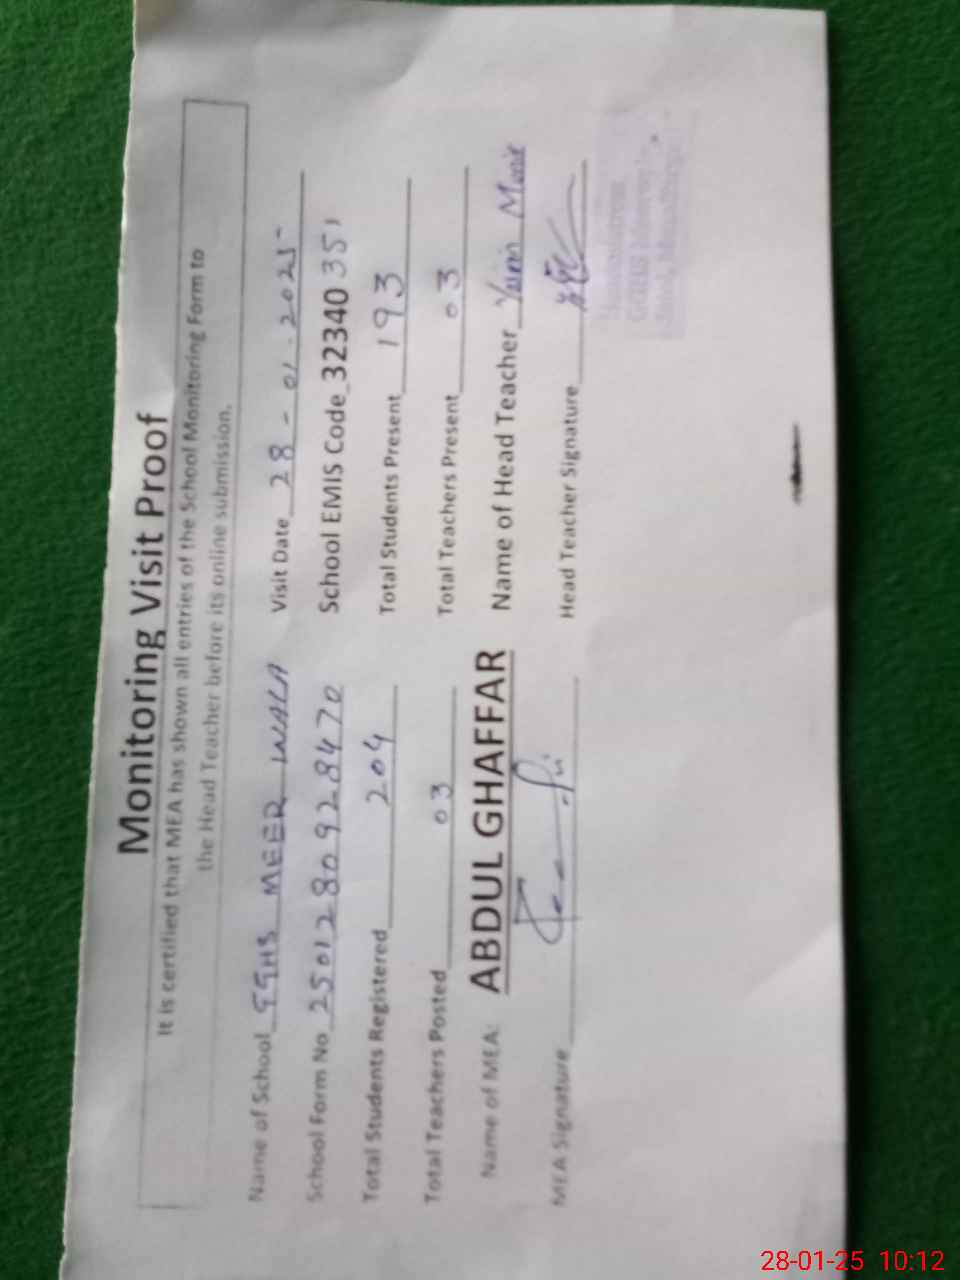 Monitoring Visit Proof
It is certified that MEA has shown all entries of the School Monitoring Form to
the Head Teacher before its online submission.
Name of School GGHS MEER WALA Visit Date 28 - 01 - 2025
School Form No 250128092 8470 School EMIS Code 32340 351
Total Students Registered 204 Total Students Present 193
Total Teachers Posted 03 Total Teachers Present 03
Name of MEA: ABDUL GHAFFAR Name of Head Teacher
MEA Signature Head Teacher Signature
28-01-25 10:12